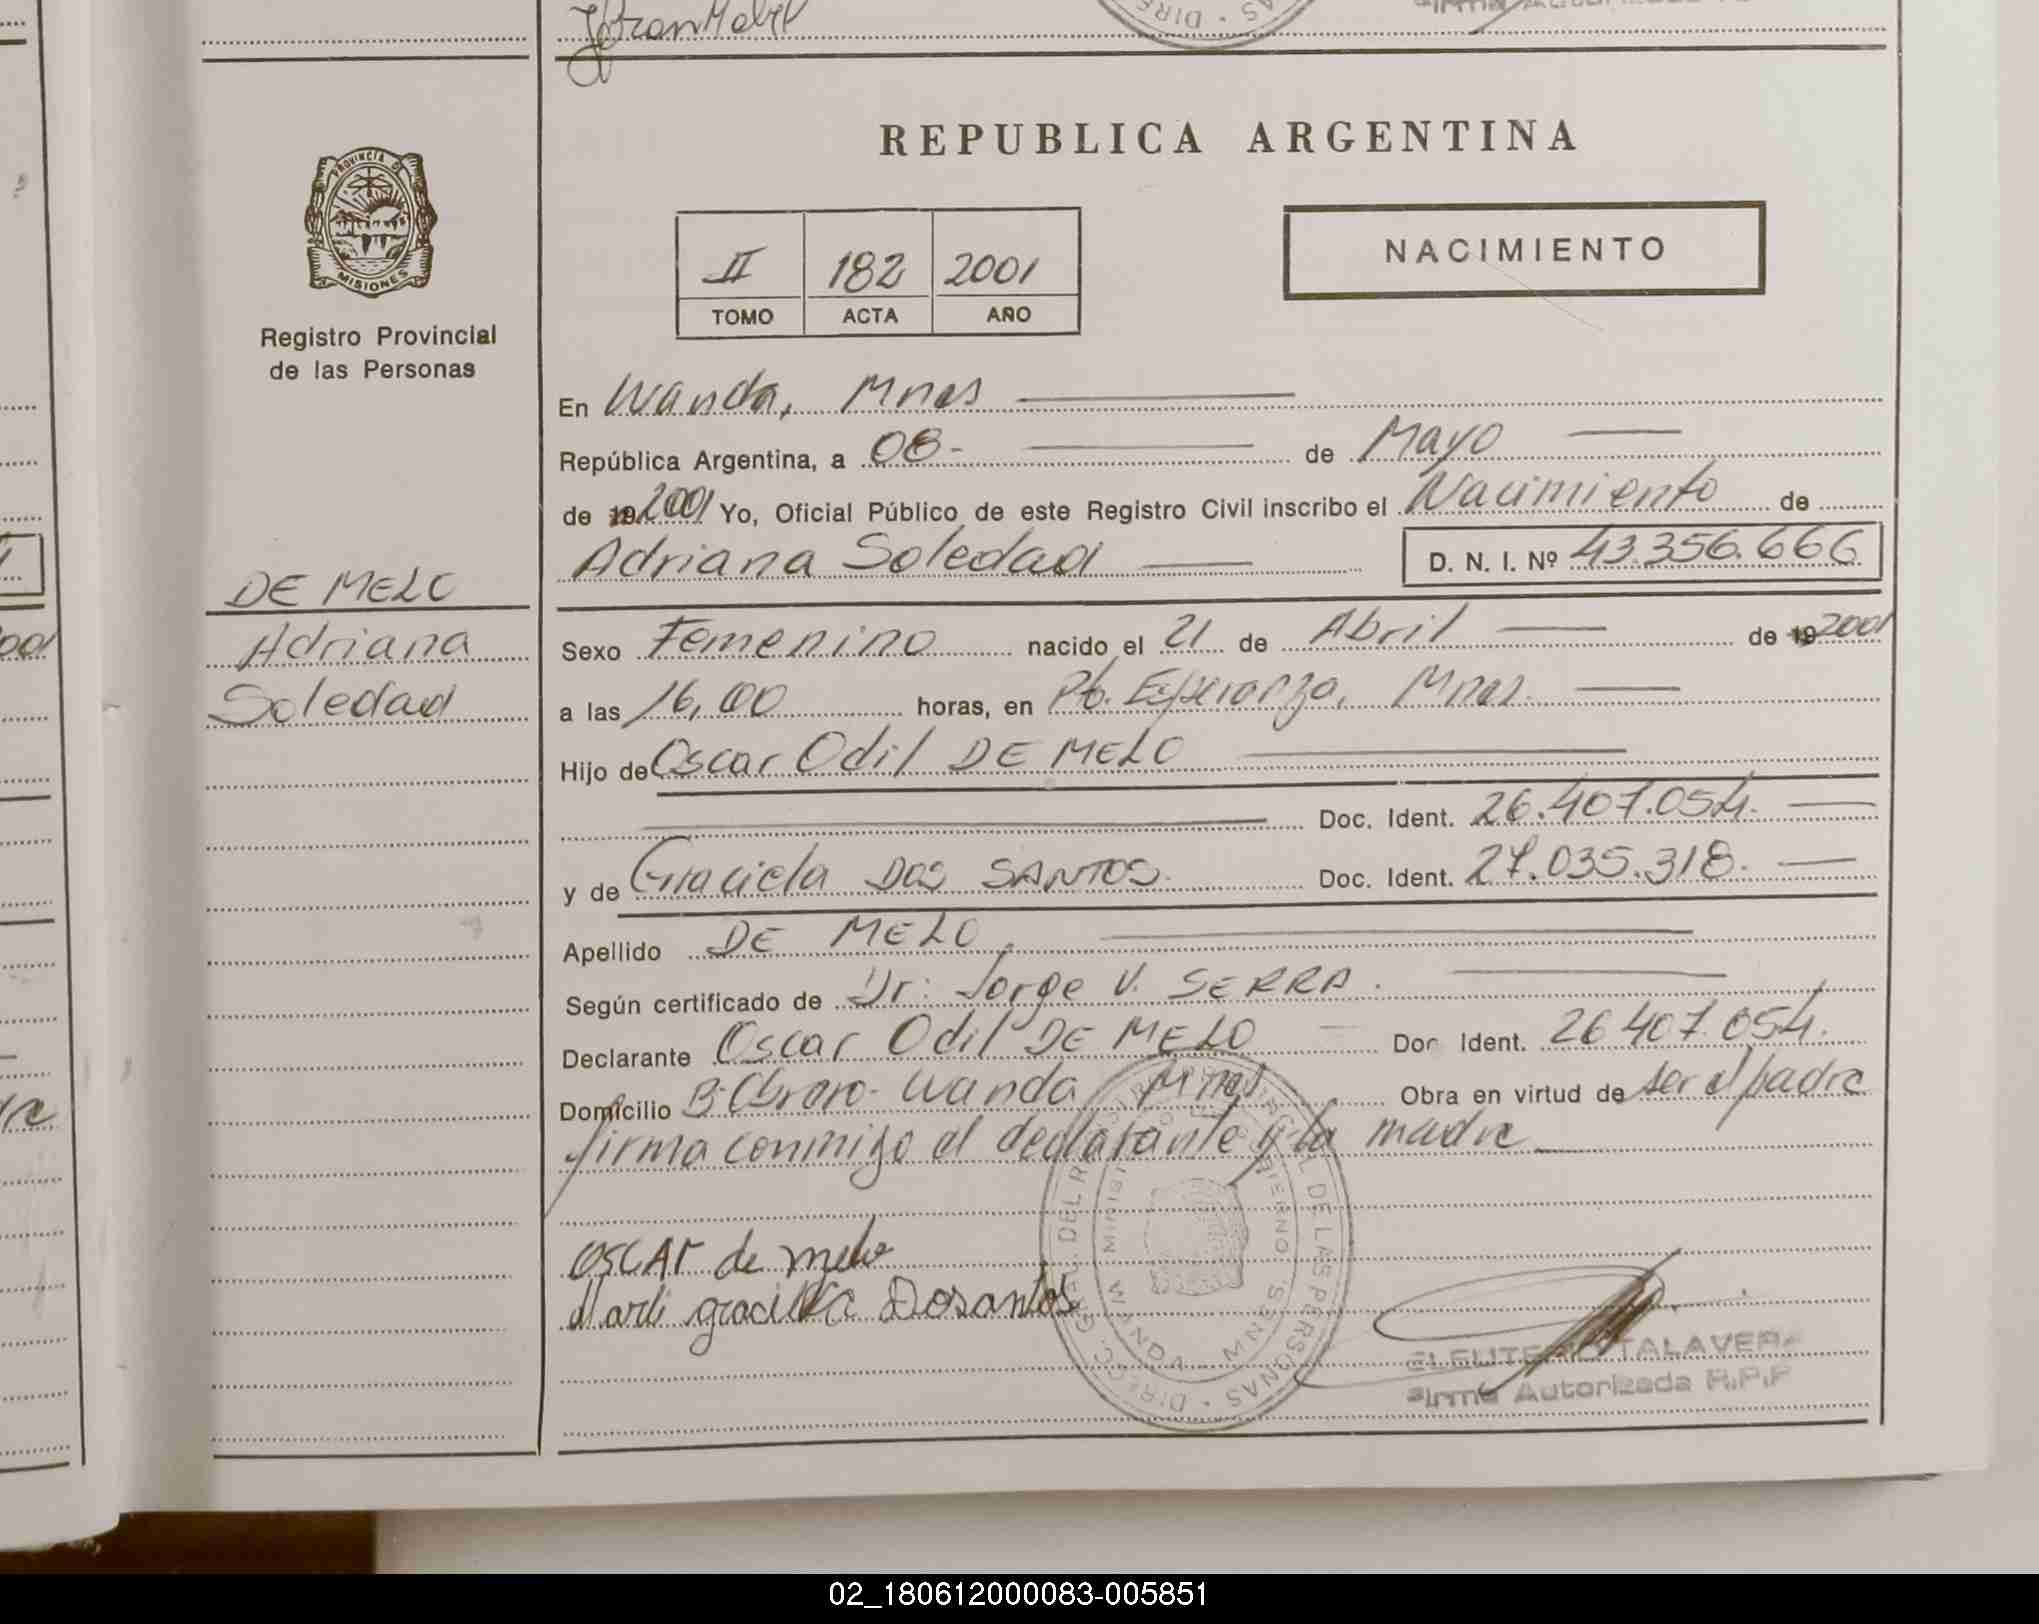 REPUBLICA ARGENTINA
PROVINCIA DE
MISIONES
Registro Provincial
de las Personas
II 182 2001
TOMO ACTA AÑO
NACIMIENTO
En Wanda, Mnes
República Argentina, a 08- de Mayo
de 19 2001 Yo, Oficial Público de este Registro Civil inscribo el Nacimiento de
Adriana Soledad D. N. I. Nº 43.356.666
DE MELO
Adriana
Soledad
Sexo Femenino nacido el 21 de Abril de 19 2001
a las 16,00 horas, en Pto. Esperanza, Mnes.
Hijo de Oscar Odil DE MELO
Doc. Ident. 26.407.054.
y de Graciela DOS SANTOS. Doc. Ident. 27.035.318.
Apellido DE MELO.
Según certificado de Dr: Jorge V. SERRA.
Declarante Oscar Odil DE MELO Doc Ident. 26 407.054.
Domicilio Bº Obrero- Wanda Mnes Obra en virtud de ser el padre
firma conmigo el declarante y la madre
OSCAR de melo
Marli graciela Dosantos
ELEUTERIO TALAVERA
Firma Autorizada R.P.P
02_180612000083-005851